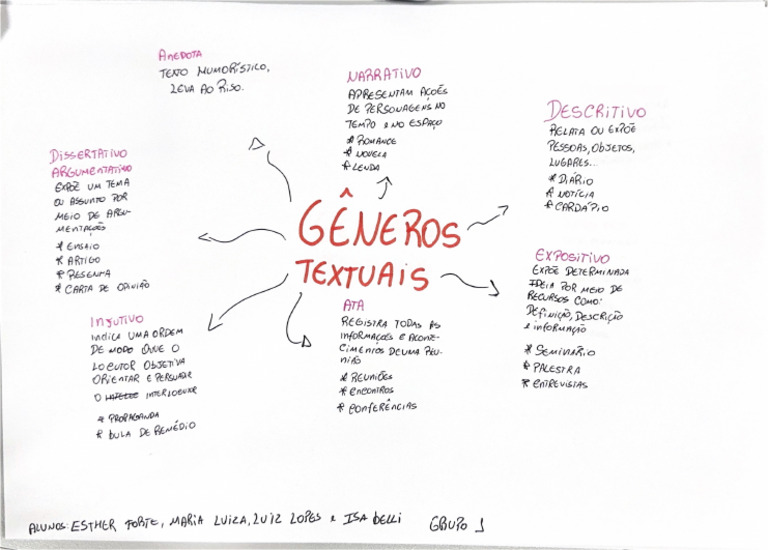 ANEDOTA
TEXTO HUMORÍSTICO,
LEVA AO RISO.
NARRATIVO
APRESENTAM AÇÕES
DE PERSONAGENS NO
TEMPO E NO ESPAÇO
* ROMANCE
* NOVELA
* LENDA
DESCRITIVO
RELATA OU EXPÕE
PESSOAS, OBJETOS,
LUGARES...
* DIÁRIO
* NOTÍCIA
* CARDÁPIO
DISSERTATIVO
ARGUMENTATIVO
EXPÕE UM TEMA
OU ASSUNTO POR
MEIO DE ARGU-
MENTAÇÕES
* ENSAIO
* ARTIGO
* RESENHA
* CARTA DE OPINIÃO
GÊNEROS
TEXTUAIS
EXPOSITIVO
EXPÕE DETERMINADA
IDEIA POR MEIO DE
RECURSOS COMO:
DEFINIÇÃO, DESCRIÇÃO
E INFORMAÇÃO
* SEMINÁRIO
* PALESTRA
* ENTREVISTAS
INJUTIVO
INDICA UMA ORDEM
DE MODO QUE O
LOCUTOR OBJETIVA
ORIENTAR E PERSUADIR
O INTERLOCUTOR
* PROPAGANDA
* BULA DE REMÉDIO
ATA
REGISTRA TODAS AS
INFORMAÇÕES E ACONTE-
CIMENTOS DE UMA REU-
NIÃO
* REUNIÕES
* ENCONTROS
* CONFERÊNCIAS
ALUNOS: ESTHER FORTE, MARIA LUIZA, LUIZ LOPES E ISA BELLI GRUPO 1